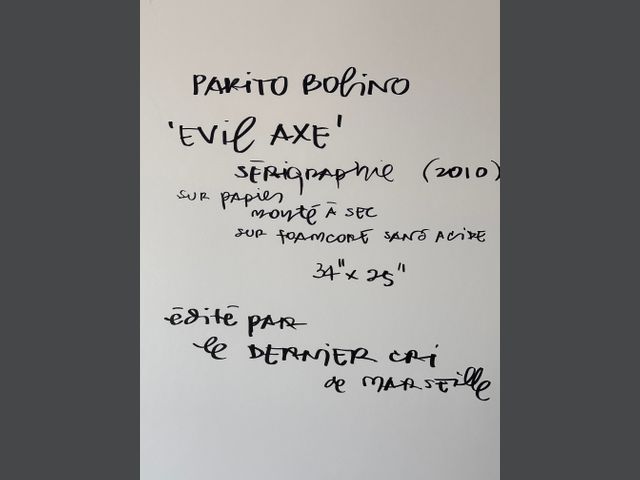 PAKITO BOLINO
'EVIL AXE'
SÉRIGRAPHIE (2010)
SUR PAPIER
MONTÉ À SEC
SUR FOAMCORE SANS ACIDE
34" x 25"
édité PAR
le DERNIER CRI
de MARSEille